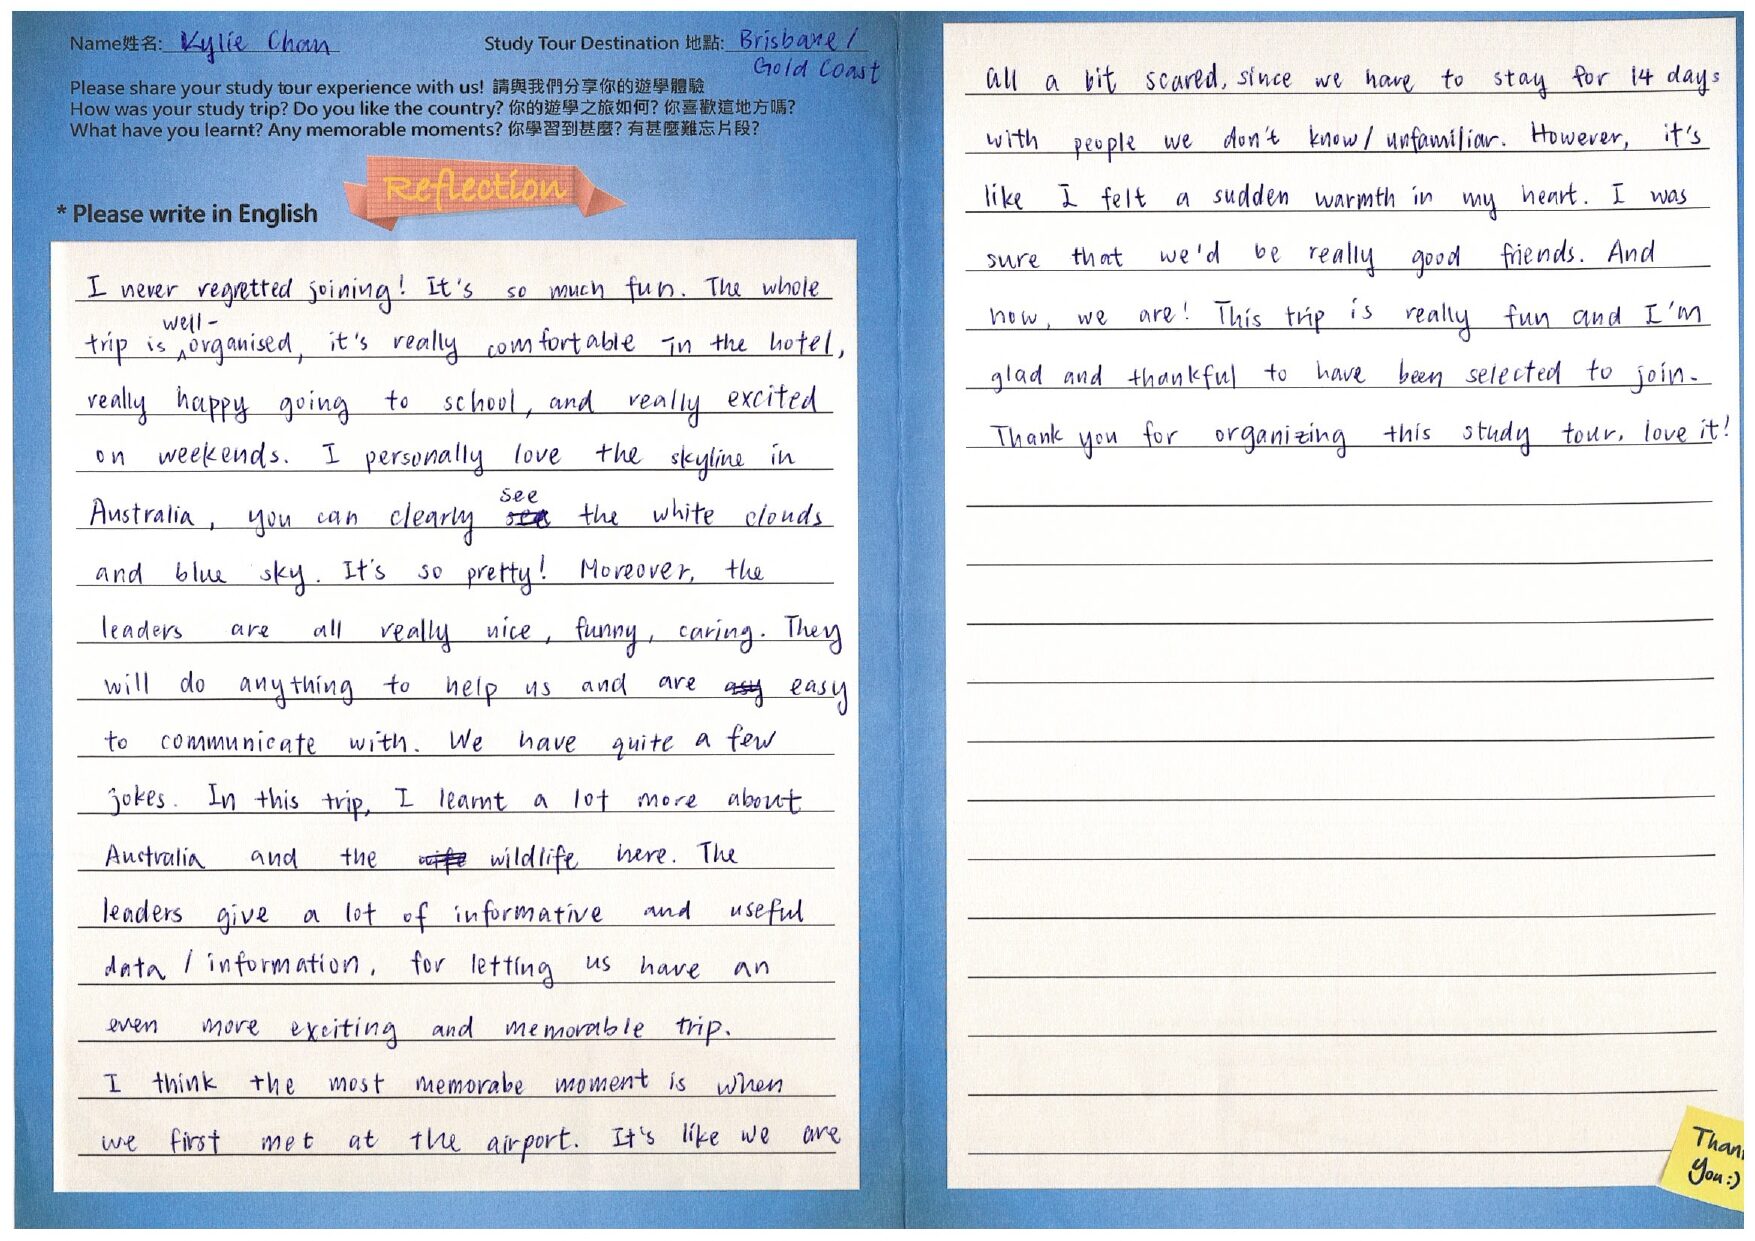 Name姓名: Kylie Chan Study Tour Destination 地點: Brisbane /
Gold Coast
Please share your study tour experience with us! 請與我們分享你的遊學體驗
How was your study trip? Do you like the country? 你的遊學之旅如何? 你喜歡這地方嗎?
What have you learnt? Any memorable moments? 你學習到甚麼? 有甚麼難忘片段?
Reflection
* Please write in English
I never regretted joining! It's so much fun. The whole
trip is well-organised, it's really comfortable in the hotel,
really happy going to school, and really excited
on weekends. I personally love the skyline in
Australia, you can clearly see the white clouds
and blue sky. It's so pretty! Moreover, the
leaders are all really nice, funny, caring. They
will do anything to help us and are easy
to communicate with. We have quite a few
jokes. In this trip, I learnt a lot more about
Australia and the wildlife here. The
leaders give a lot of informative and useful
data / information, for letting us have an
even more exciting and memorable trip.
I think the most memorabe moment is when
we first met at the airport. It's like we are
all a bit scared, since we have to stay for 14 days
with people we don't know/ unfamiliar. However, it's
like I felt a sudden warmth in my heart. I was
sure that we'd be really good friends. And
now, we are! This trip is really fun and I'm
glad and thankful to have been selected to join.
Thank you for organizing this study tour, love it!
Than
You:)